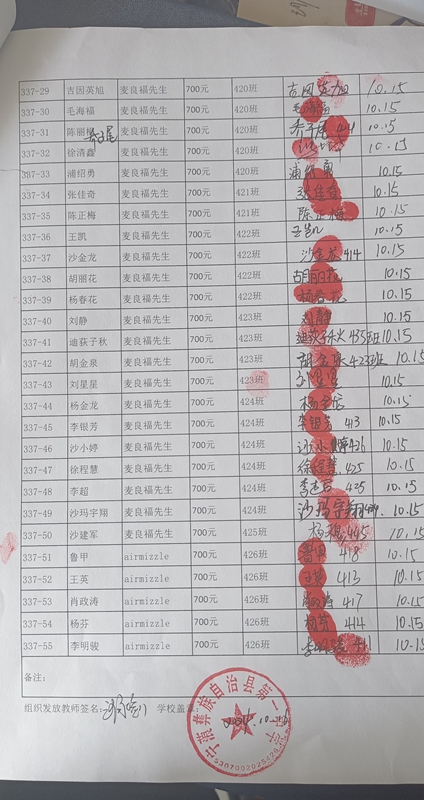 337-29 吉因英旭 麦良福先生 700元 420班 10.15
337-30 毛海福 麦良福先生 700元 420班 毛海福 10.15
337-31 陈丽 麦良福先生 700元 420班 411 10.15
337-32 徐清鑫 麦良福先生 700元 420班 10.15
337-33 浦绍勇 麦良福先生 700元 420班 浦绍勇 10.15
337-34 张佳奇 麦良福先生 700元 421班 张佳奇 10.15
337-35 陈正梅 麦良福先生 700元 421班 陈正梅 10.15
337-36 王凯 麦良福先生 700元 422班 王凯 10.15
337-37 沙金龙 麦良福先生 700元 422班 沙金龙 414 10.15
337-38 胡丽花 麦良福先生 700元 422班 胡丽花 10.15
337-39 杨春花 麦良福先生 700元 422班 杨春花 10.15
337-40 刘静 麦良福先生 700元 423班 刘静 10.15
337-41 迪荻子秋 麦良福先生 700元 423班 迪荻子秋 435班 10.15
337-42 胡金泉 麦良福先生 700元 423班 胡金泉 423班 10.15
337-43 刘星星 麦良福先生 700元 423班 刘星星 10.15
337-44 杨金龙 麦良福先生 700元 424班 杨金龙 10.15
337-45 李银芳 麦良福先生 700元 424班 李银芳 413 10.15
337-46 沙小婷 麦良福先生 700元 424班 沙小婷 426 10.15
337-47 徐程慧 麦良福先生 700元 424班 徐程慧 425 10.15
337-48 李超 麦良福先生 700元 424班 425 10.15
337-49 沙玛宇翔 麦良福先生 700元 424班 沙玛宇翔 10.15
337-50 沙建军 麦良福先生 700元 425班 445 10.15
337-51 鲁甲 airmizzle 700元 426班 鲁甲 418 10.15
337-52 王英 airmizzle 700元 426班 王英 413 10.15
337-53 肖政涛 airmizzle 700元 426班 肖政涛 417 10.15
337-54 杨芬 airmizzle 700元 426班 杨芬 414 10.15
337-55 李明骏 airmizzle 700元 426班 李明骏 411 10.15
备注：
组织发放教师签名： 学校盖章：
宁蒗彝族自治县第一中学